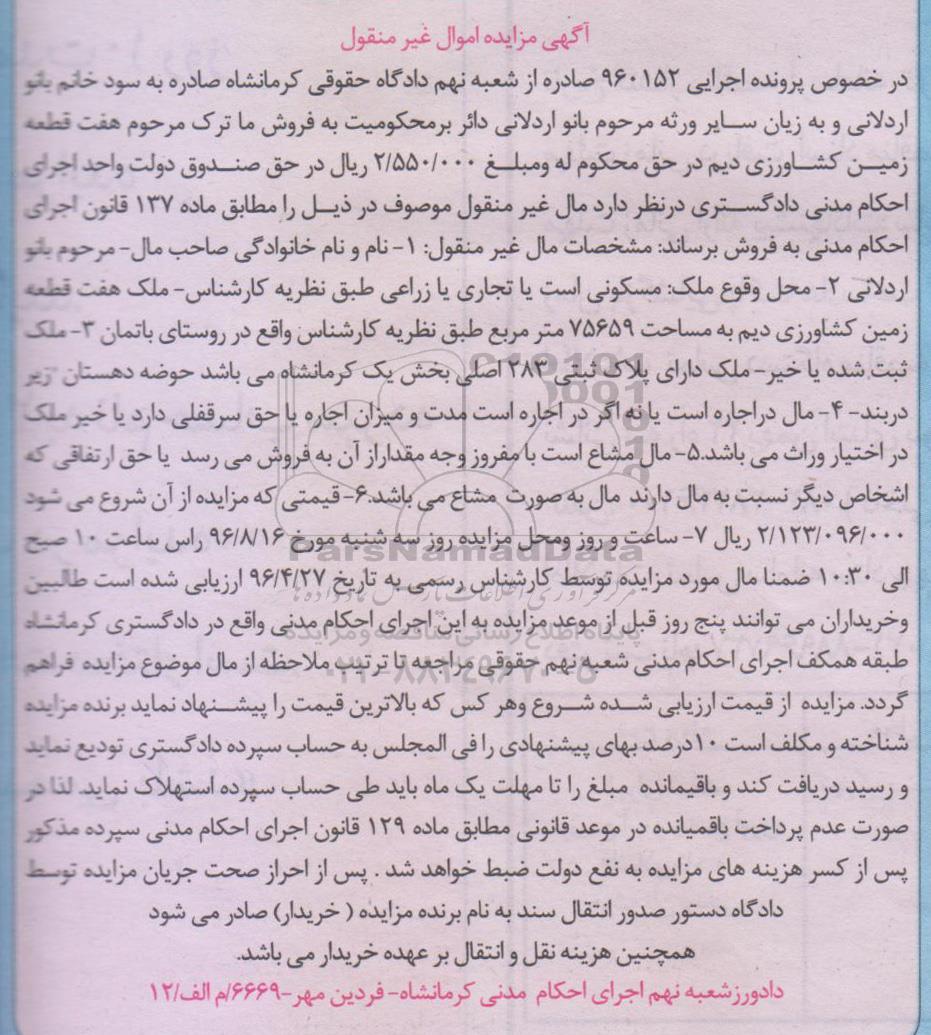 آگهی مزایده اموال غیر منقول
در خصوص پرونده اجرایی ۹۶۰۱۵۲ صادره از شعبه نهم دادگاه حقوقی کرمانشاه صادره به سود خانم بانو
اردلانی و به زیان سایر ورثه مرحوم بانو اردلانی دائر برمحکومیت به فروش ما ترک مرحوم هفت قطعه
زمین کشاورزی دیم در حق محکوم له ومبلغ ۲/۵۵۰/۰۰۰ ریال در حق صندوق دولت واحد اجرای
احکام مدنی دادگستری درنظر دارد مال غیر منقول موصوف در ذیل را مطابق ماده ۱۳۷ قانون اجرای
احکام مدنی به فروش برساند: مشخصات مال غیر منقول: ۱- نام و نام خانوادگی صاحب مال- مرحوم بانو
اردلانی ۲- محل وقوع ملک: مسکونی است یا تجاری یا زراعی طبق نظریه کارشناس- ملک هفت قطعه
زمین کشاورزی دیم به مساحت ۷۵۶۵۹ متر مربع طبق نظریه کارشناس واقع در روستای باتمان ۳- ملک
ثبت شده یا خیر- ملک دارای پلاک ثبتی ۲۸۳ اصلی بخش یک کرمانشاه می باشد حوضه دهستان زیر
دربند- ۴- مال دراجاره است یا نه اگر در اجاره است مدت و میزان اجاره یا حق سرقفلی دارد یا خیر ملک
در اختیار وراث می باشد.۵- مال مشاع است با مفروز وجه مقداراز آن به فروش می رسد یا حق ارتفاقی که
اشخاص دیگر نسبت به مال دارند مال به صورت مشاع می باشد.۶- قیمتی که مزایده از آن شروع می شود
۲/۱۲۳/۰۹۶/۰۰۰ ریال ۷- ساعت و روز ومحل مزایده روز سه شنبه مورخ ۹۶/۸/۱۶ راس ساعت ۱۰ صبح
الی ۱۰:۳۰ ضمنا مال مورد مزایده توسط کارشناس رسمی به تاریخ ۹۶/۴/۲۷ ارزیابی شده است طالبین
وخریداران می توانند پنج روز قبل از موعد مزایده به این اجرای احکام مدنی واقع در دادگستری کرمانشاه
طبقه همکف اجرای احکام مدنی شعبه نهم حقوقی مراجعه تا ترتیب ملاحظه از مال موضوع مزایده فراهم
گردد. مزایده از قیمت ارزیابی شده شروع وهر کس که بالاترین قیمت را پیشنهاد نماید برنده مزایده
شناخته و مکلف است ۱۰درصد بهای پیشنهادی را فی المجلس به حساب سپرده دادگستری تودیع نماید
و رسید دریافت کند و باقیمانده مبلغ را تا مهلت یک ماه باید طی حساب سپرده استهلاک نماید. لذا در
صورت عدم پرداخت باقمیانده در موعد قانونی مطابق ماده ۱۲۹ قانون اجرای احکام مدنی سپرده مذکور
پس از کسر هزینه های مزایده به نفع دولت ضبط خواهد شد . پس از احراز صحت جریان مزایده توسط
دادگاه دستور صدور انتقال سند به نام برنده مزایده ( خریدار) صادر می شود
همچنین هزینه نقل و انتقال بر عهده خریدار می باشد.
دادورزشعبه نهم اجرای احکام مدنی کرمانشاه- فردین مهر-۶۶۶۹/م الف/۱۲
ParsNamadData
پایگاه اطلاع رسانی مناقصه ومزایده